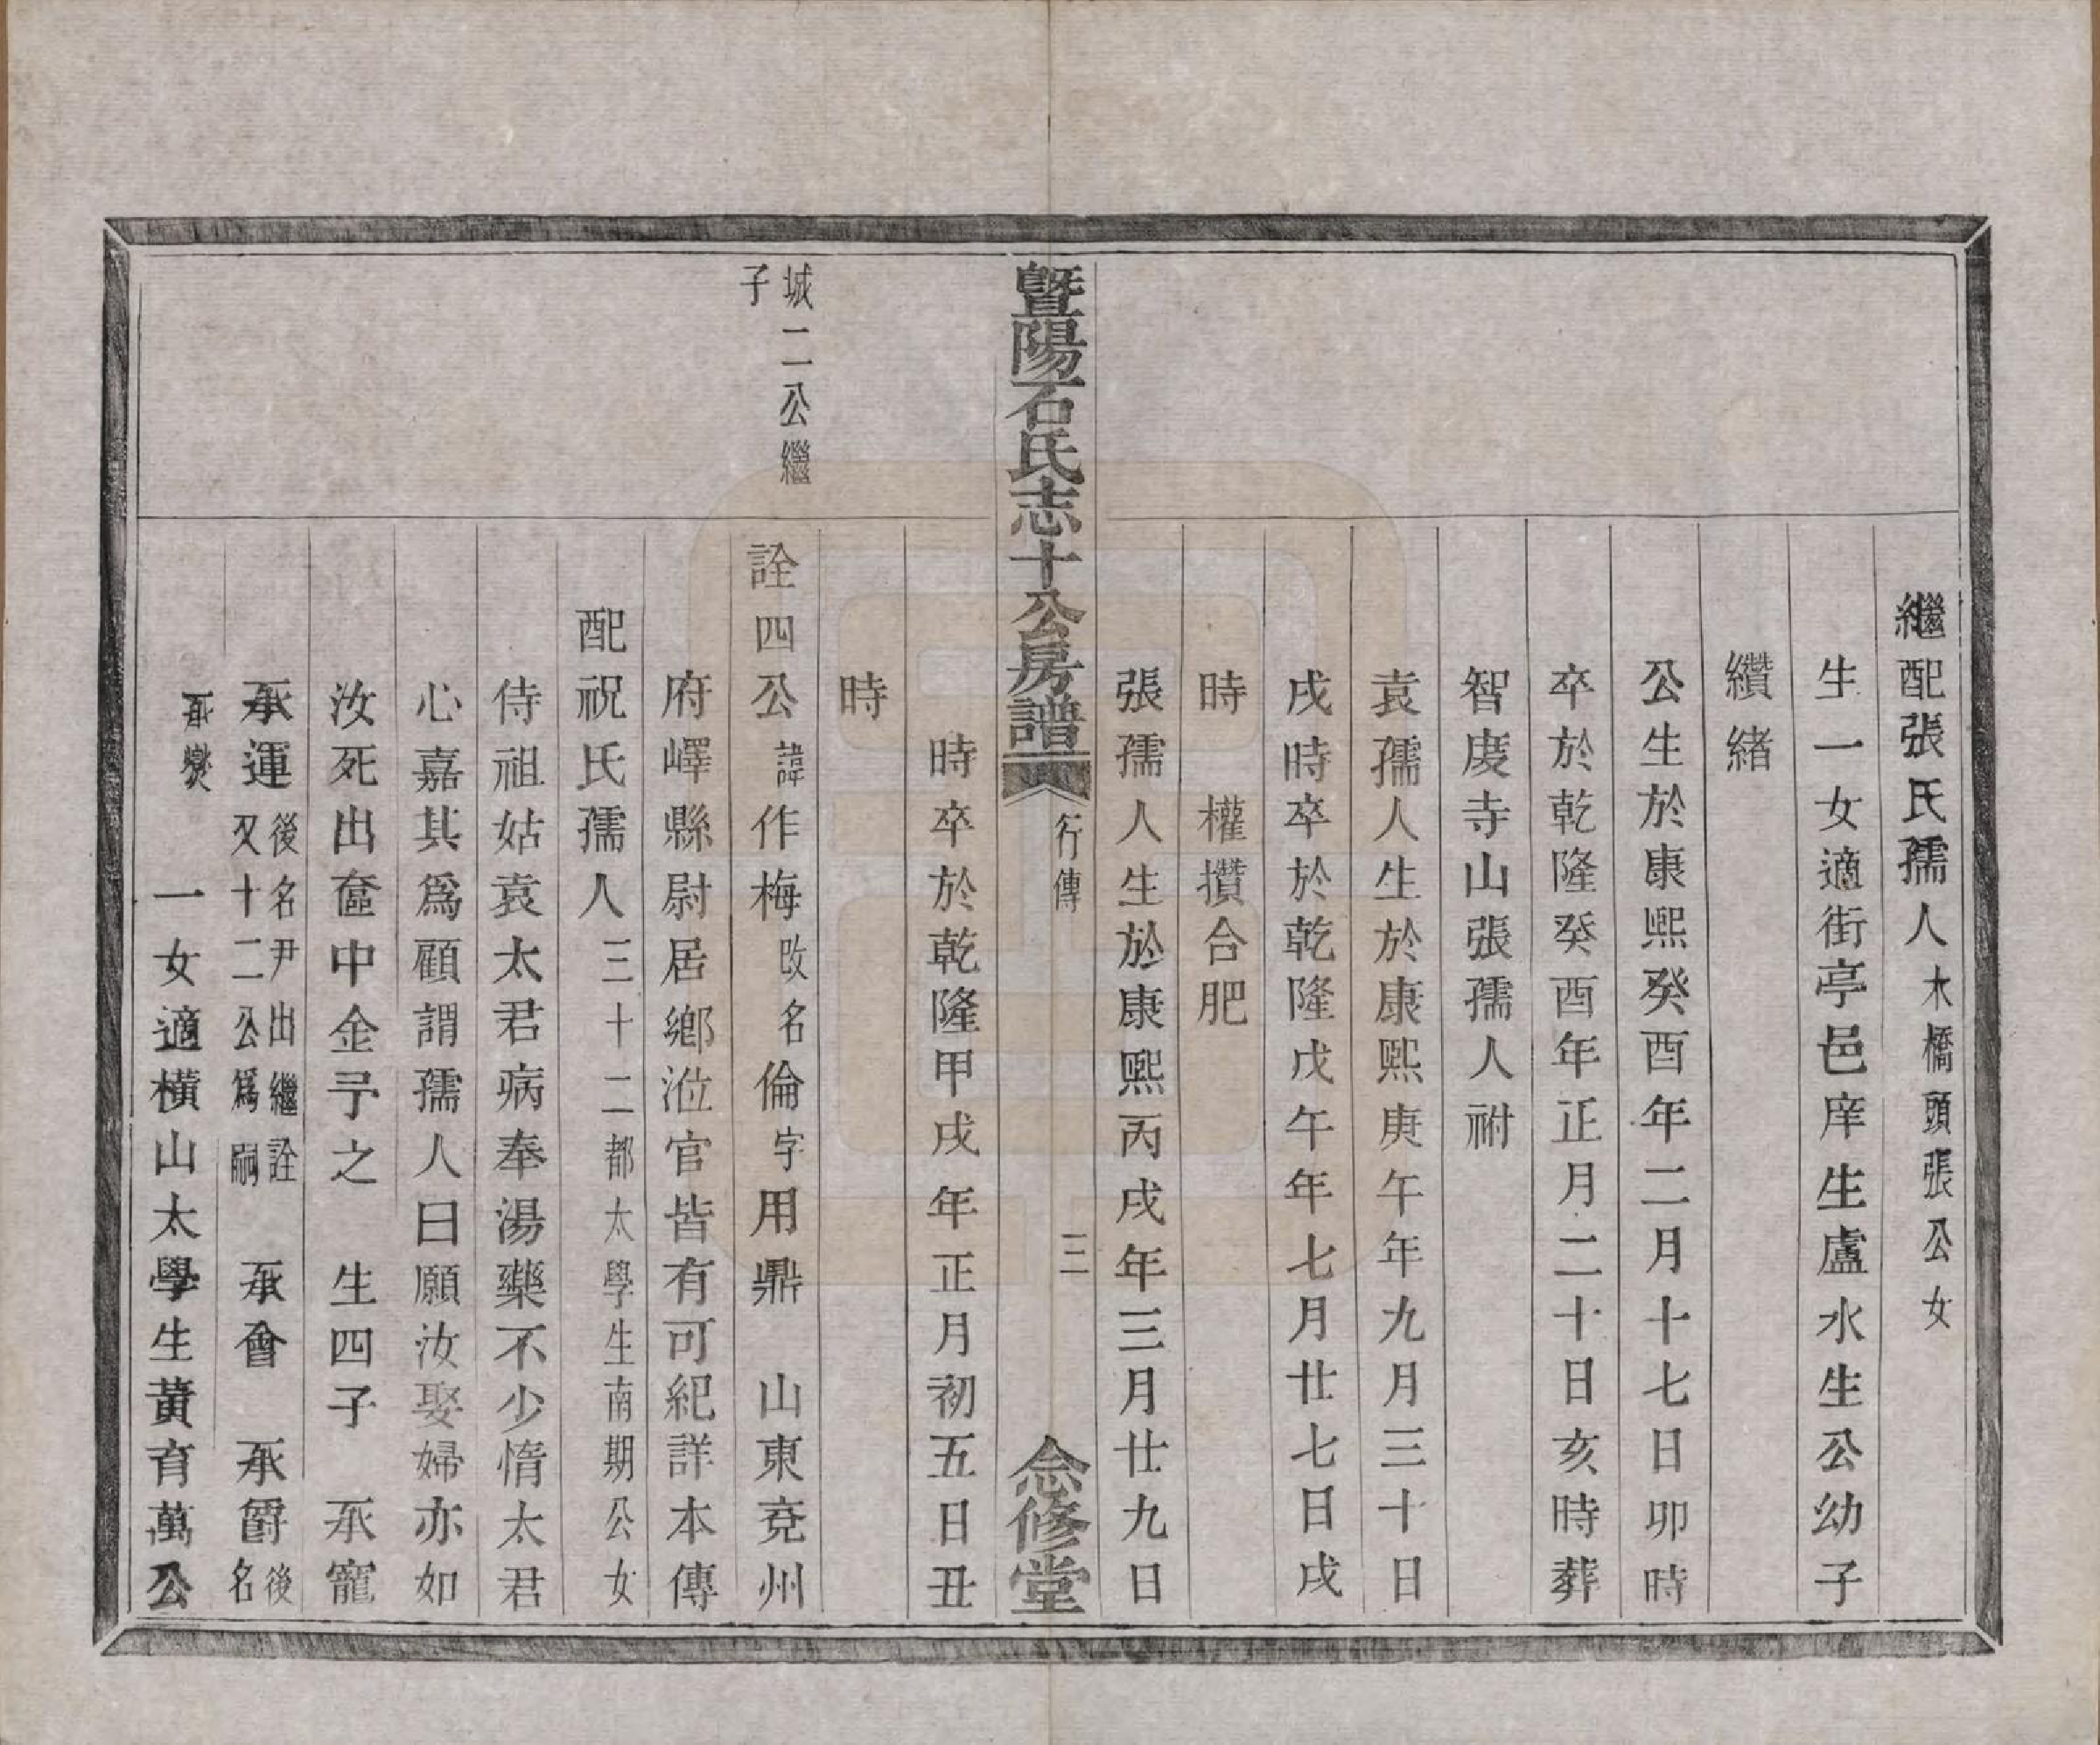 繼配張氏孺人木橋頭張公女
生一女適街亭邑庠生盧水生公幼子
纘緒
公生於康熙癸酉年二月十七日卯時
卒於乾隆癸酉年正月二十日亥時葬
智度寺山張孺人祔
袁孺人生於康熙庚午年九月三十日
戌時卒於乾隆戊午年七月廿七日戌
時　權攢合肥
張孺人生於康熙丙戌年三月廿九日
暨陽石氏志十公房譜
行傳
三
念修堂
時卒於乾隆甲戌年正月初五日丑
時
城二公繼
子
詮四公諱作梅改名倫字用鼎　山東兗州
府嶧縣尉居鄉涖官皆有可紀詳本傳
配祝氏孺人三十二都太學生南期公女
侍祖姑袁太君病奉湯藥不少惰太君
心嘉其爲顧謂孺人曰願汝娶婦亦如
汝死出奩中金予之　生四子　承寵
承運後名尹出繼詮又十二公爲嗣　承會　承爵後名
承爕　一女適橫山太學生黃育萬公